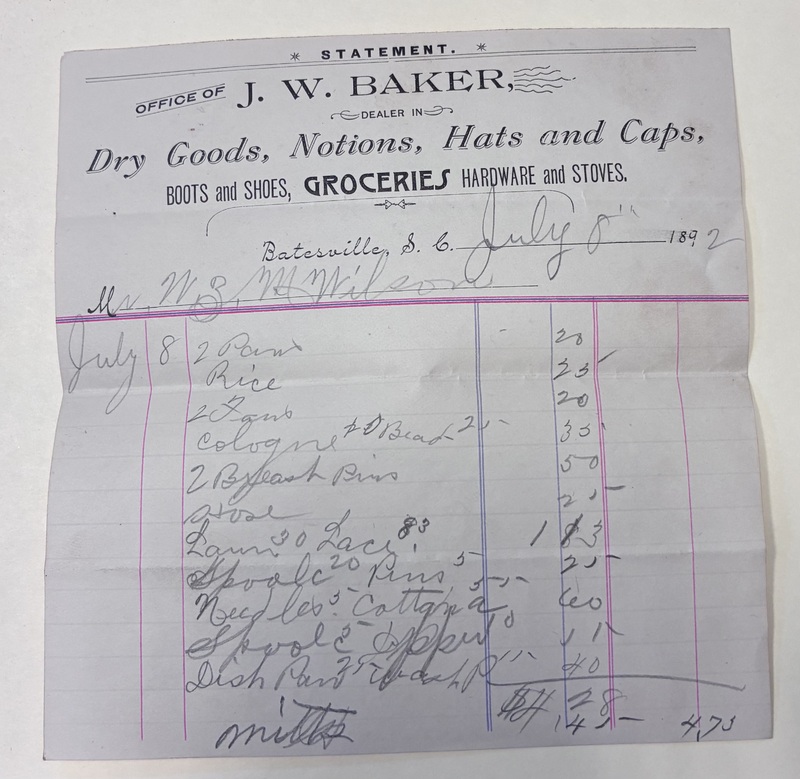 * STATEMENT. *
OFFICE OF J. W. BAKER,
DEALER IN
Dry Goods, Notions, Hats and Caps,
BOOTS and SHOES, GROCERIES HARDWARE and STOVES.
Batesville, S. C. July 8" 1892
Mr. W. Wilson
July 8 2 Pans 20
Rice 25
2 Fans 20
Cologne 10 Bead 25 35
2 Breast Pins 50
Hose 25
Lawn 30 Lace 83 1
Spools 20 Pins 5 25
Needles 5 Cotton 55 60
Spool 5 10 15
Dish Pan 25 Wash P 15 40
$4 28
Mitts 45 4,73